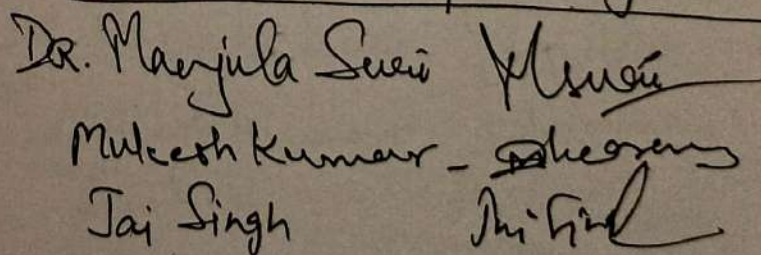 DR. Manjula Suri MSuri
Mukesh Kumar -
Jai Singh